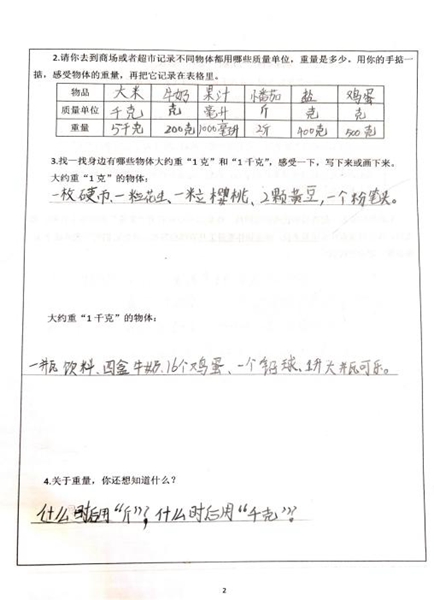 2.请你去到商场或者超市记录不同物体都用哪些质量单位，重量是多少，用你的手掂一
掂，感受物体的重量，再把它记录在表格里。
物品 大米 牛奶 果汁 番茄 盐 鸡蛋
质量单位 千克 克 毫升 斤 克 克
重量 5千克 200克 1000毫升 2斤 400克 500克
3.找一找身边有哪些物体大约重“1 克”和“1 千克”，感受一下，写下来或画下来。
大约重“1 克”的物体：
一枚硬币、一粒花生、一粒樱桃、2颗黄豆，一个粉笔头。
大约重“1 千克”的物体：
一瓶饮料、四盒牛奶、16个鸡蛋、一个铅球、1升大瓶可乐。
4.关于重量，你还想知道什么？
什么时后用“斤”？，什么时后用“千克”？
2